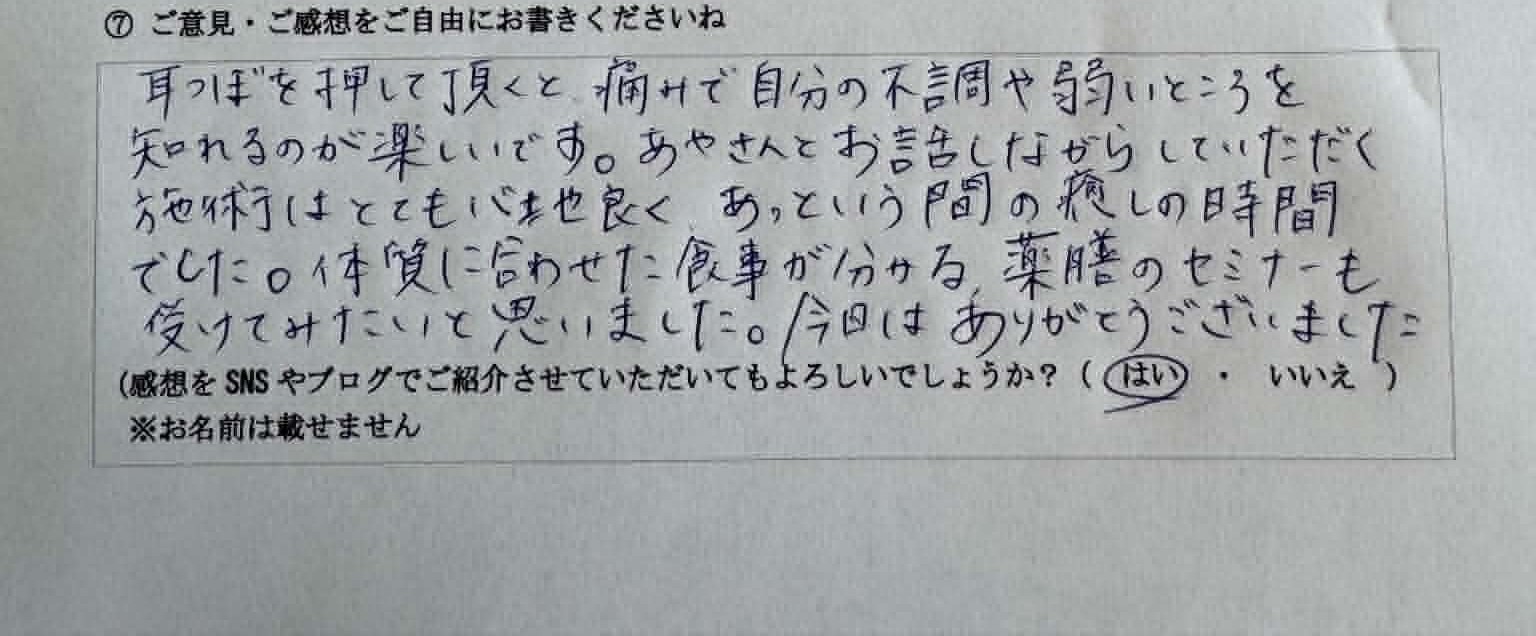 ⑦ ご意見・ご感想をご自由にお書きくださいね
耳つぼを押して頂くと、痛みで自分の不調や弱いところを
知れるのが楽しいです。あやさんとお話しながらしていただく
施術はとても心地良く、あっという間の癒しの時間
でした。体質に合わせた食事が分かる、薬膳のセミナーも
受けてみたいと思いました。今日はありがとうございました
(感想を SNS やブログでご紹介させていただいてもよろしいでしょうか?( はい ・ いいえ )
※お名前は載せません